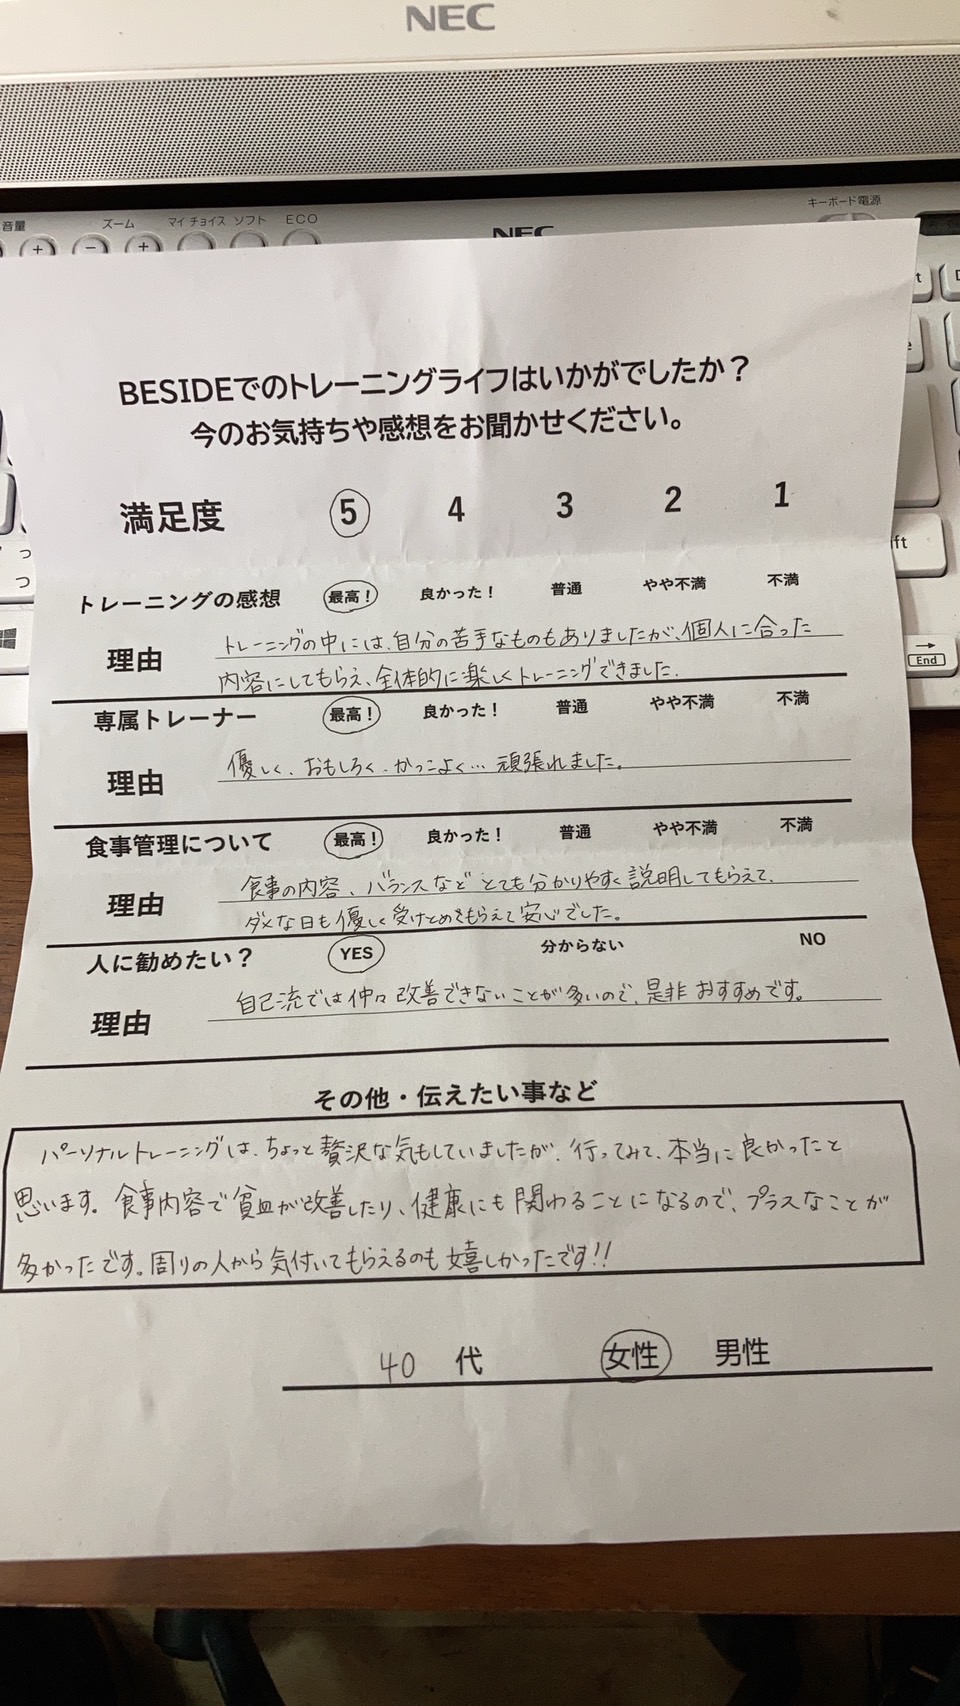 NEC
音量
ズーム
マイ チョイス
ソフト
ECO
キーボード電源
NEC
BESIDEでのトレーニングライフはいかがでしたか？
今のお気持ちや感想をお聞かせください。
満足度 5 4 3 2 1
トレーニングの感想 最高！ 良かった！ 普通 やや不満 不満
理由 トレーニングの中には、自分の苦手なものもありましたが、個人に合った
内容にしてもらえ、全体的に楽しくトレーニングできました。
専属トレーナー 最高！ 良かった！ 普通 やや不満 不満
理由 優しく、おもしろく、かっこよく… 頑張れました。
食事管理について 最高！ 良かった！ 普通 やや不満 不満
理由 食事の内容、バランスなどとても分かりやすく説明してもらえて、
ダメな日も優しく受けとめてもらえて安心でした。
人に勧めたい？ YES 分からない NO
理由 自己流では仲々改善できないことが多いので、是非おすすめです。
その他・伝えたい事など
パーソナルトレーニングは、ちょっと贅沢な気もしていましたが、行ってみて、本当に良かったと
思います。食事内容で貧血が改善したり、健康にも関わることになるので、プラスなことが
多かったです。周りの人から気付いてもらえるのも嬉しかったです!!
40 代 女性 男性
End